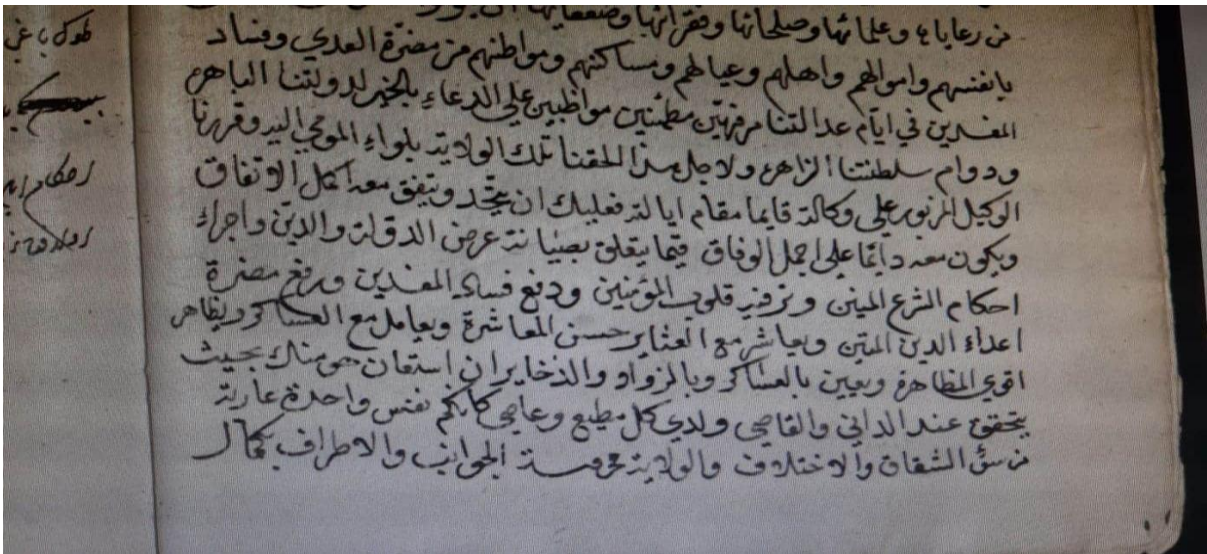 من رعاياها وعلمائها وصلحائها وفقرائها وضعفائها ان
بانفسهم واموالهم واهلهم وعيالهم ومساكنهم ومواطنهم من مضرة العدي وفساد
المفسدين في ايام عدالتنا مرفهين مطمئنين مواظبين علي الدعاء بالخير لدولتنا الباهرة
ودوام سلطنتنا الزاهرة ولاجل هذا الحقنا تلك الولاية بلواء الموحي اليه وقررنا
الوكيل المزبور علي وكالته قايما مقام ايالته فعليك ان يتحد ويتفق معه اكمل الاتفاق
ويكون معه دايما علي اجمل الوفاق فيما يتعلق بصيانة عرض الدولة والدين واجراء
احكام الشرع المبين وترفيه قلوب المؤمنين ودفع فساد المفسدين ورفع مضرة
اعداء الدين المتين ويعاشر مع العشاير حسن المعاشرة ويعامل مع العساكر ويظاهر
اقوي المظاهرة ويعين بالعساكر وبالزواد والذخاير ان استعان هو منك بحيث
يتحقق عند الداني والقاصي ولدي كل مطيع وعاصي كانكم نفس واحدة عارية
من الشقاق والاختلاف والولاية محروسة الجوانب والاطراف بكمال
احكام